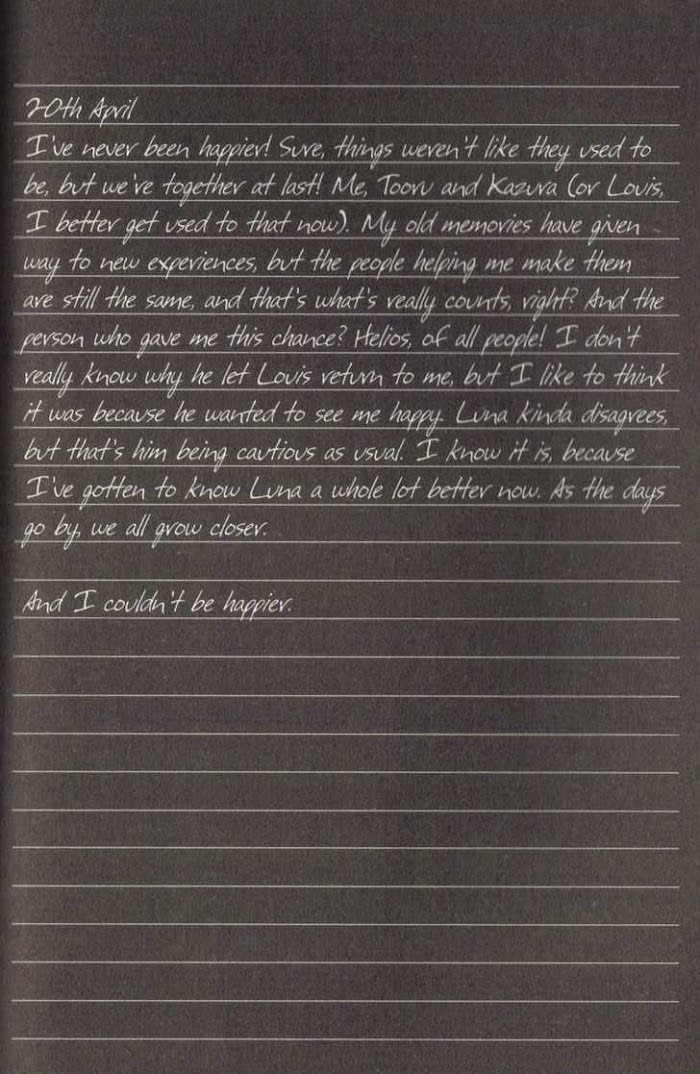 20th April
I've never been happier! Sure, things weren't like they used to
be, but we're together at last! Me, Tooru and Kazura (or Louis,
I better get used to that now). My old memories have given
way to new experiences, but the people helping me make them
are still the same, and that's what's really counts, right? And the
person who gave me this chance? Helios, of all people! I don't
really know why he let Louis return to me, but I like to think
it was because he wanted to see me happy. Luna kinda disagrees,
but that's him being cautious as usual. I know it is, because
I've gotten to know Luna a whole lot better now. As the days
go by, we all grow closer.
And I couldn't be happier.